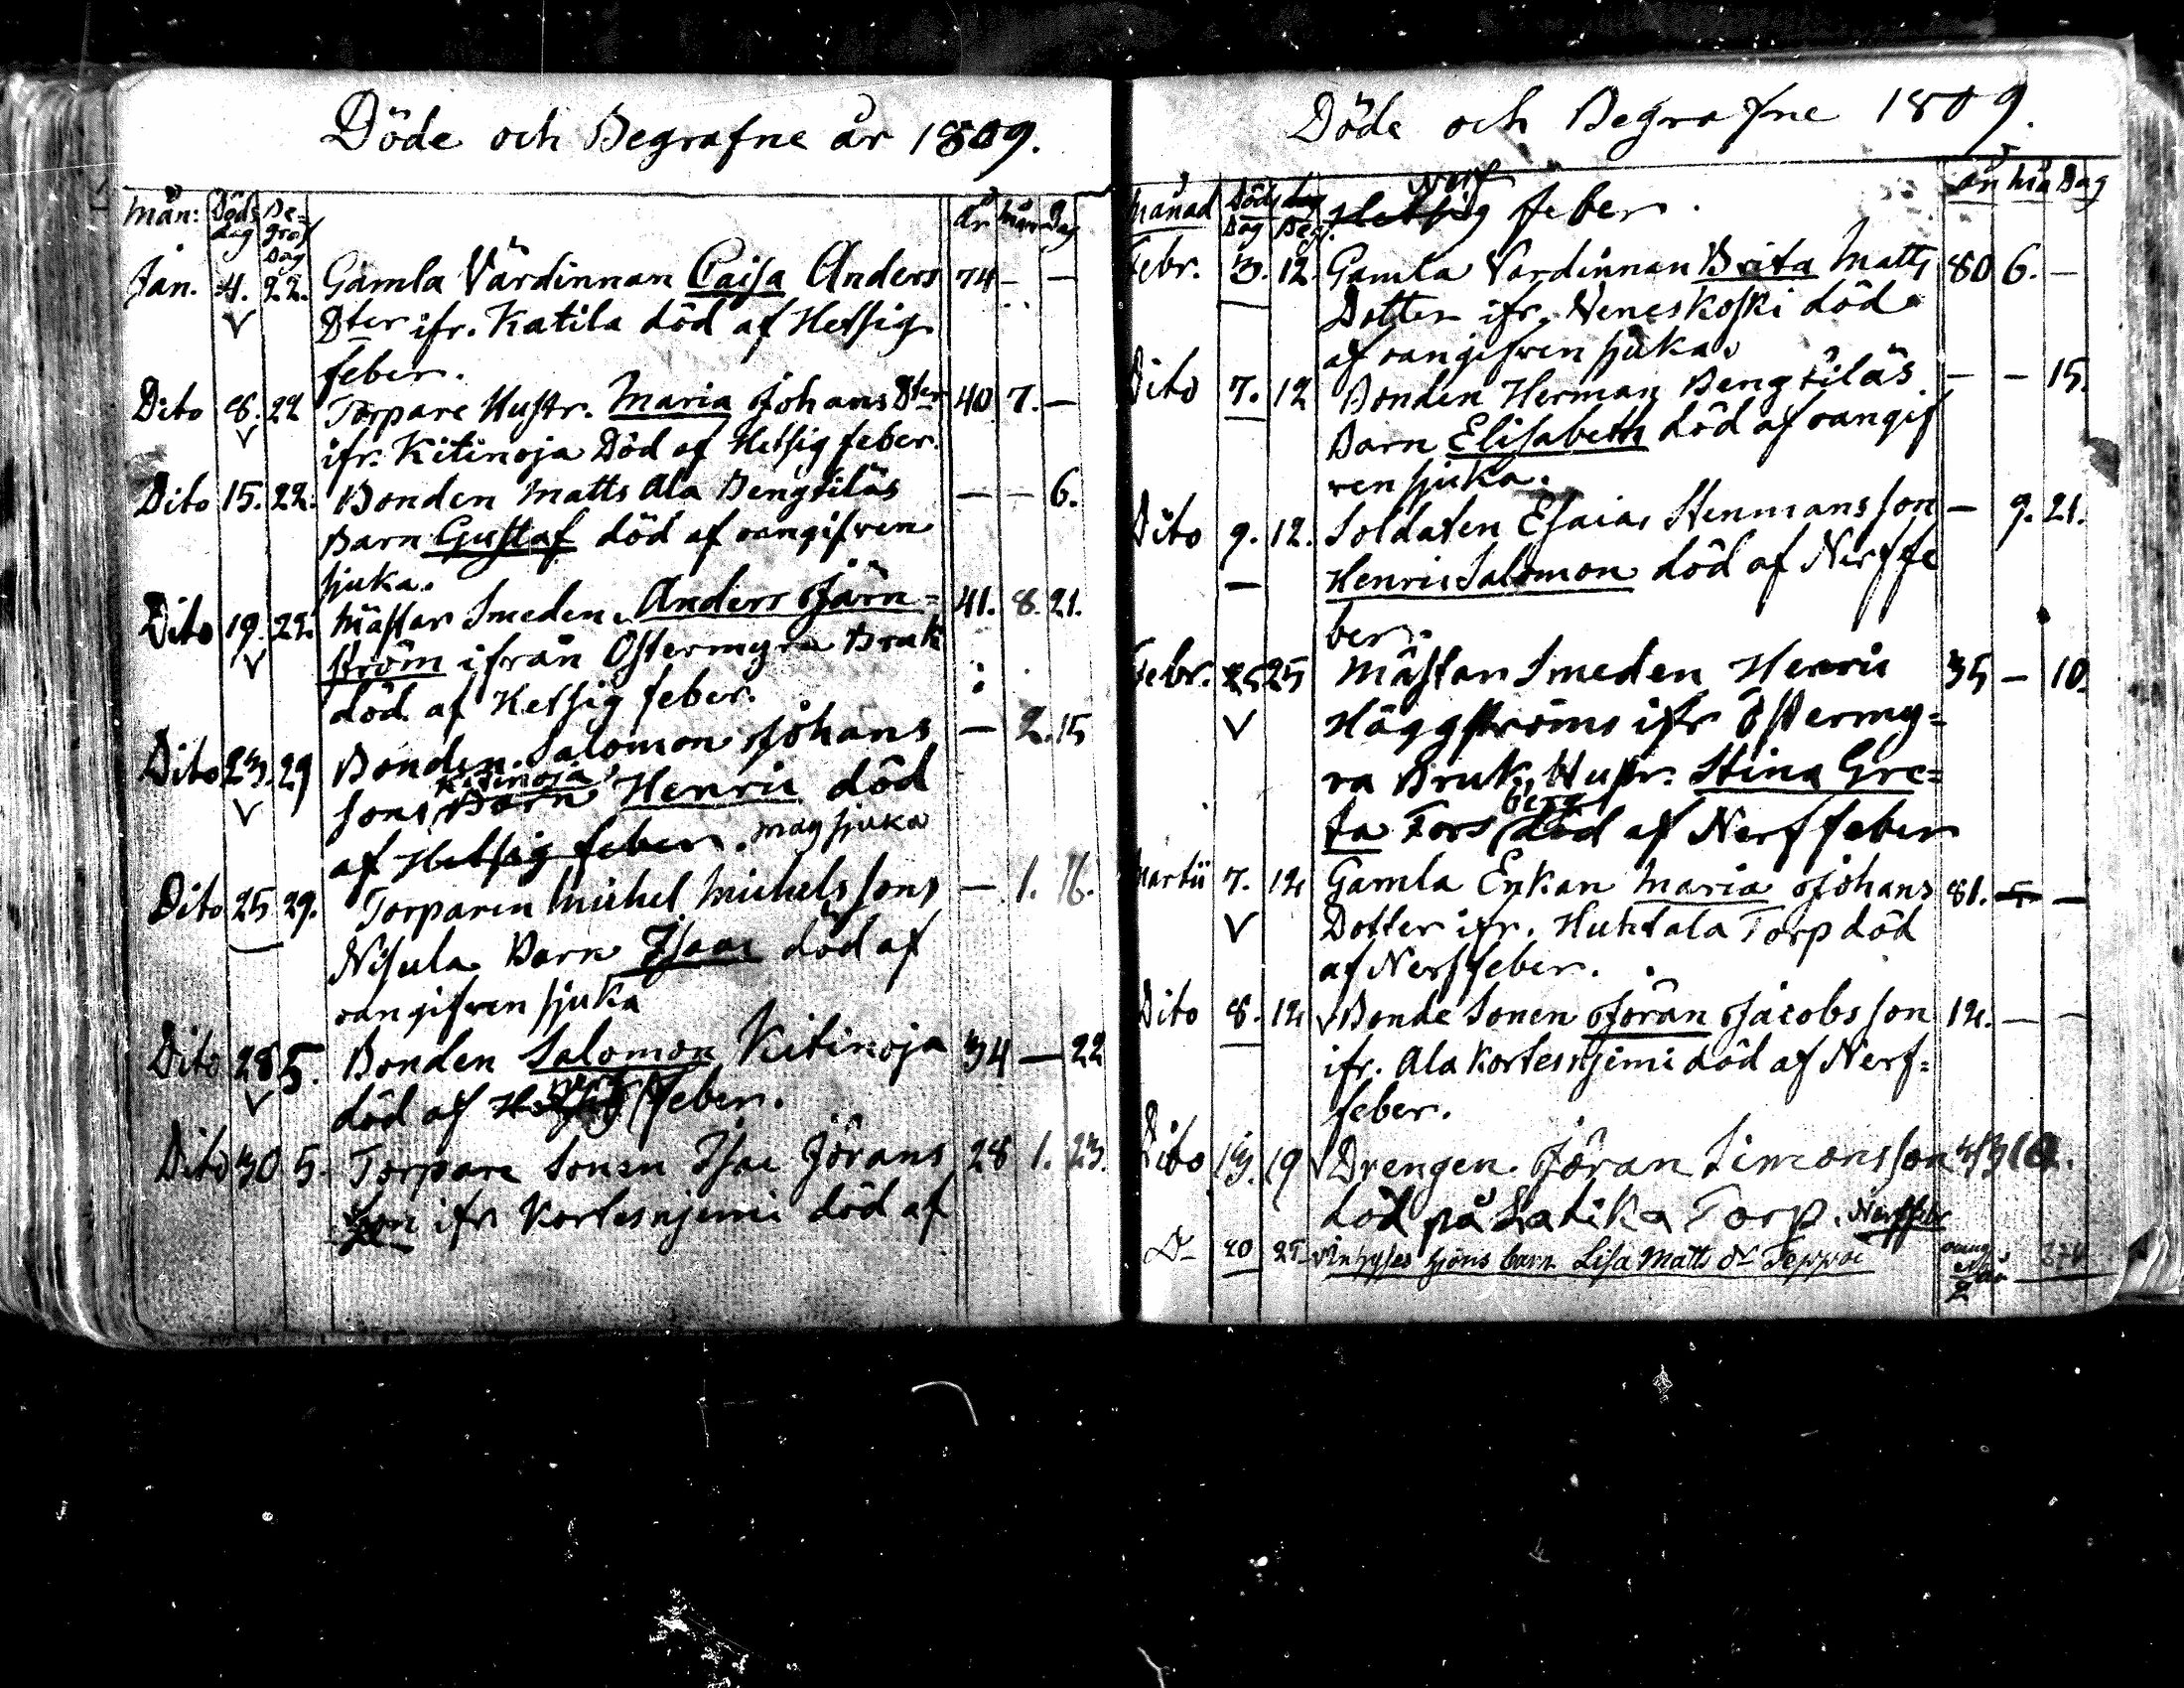 Döde och Begrafne år 1809.
Mån: Döds dag Be= graf Dag År Mån Dag
Jan. 4. 22. Gamla Värdinnan Caisa Anders 74 — —
Dter ifr. Katila död af Hetsig
feber.
Dito 8. 22 Torpare Hustr. Maria Johans Dter 40 7. —
ifr. Kitinoja Död af Hetsig feber.
Dito 15. 22. Bonden Matts Ala Bengtiläs — — 6.
Barn Gustaf död af oangifven
sjuka.
Dito 19. 22. Mästar Smeden Anders Järn= 41. 8. 21.
ström ifrån Östermyra Bruk
död af Hetsig feber.
Dito 23. 29 Bonden Salomon Johans — 2. 15
sons Kitinoja Barn Henric död
af Hetsig feber. magsjuka
Dito 25 29. Torparen Michel Michels sons — 1. 16.
Nisula Barn Isaac död af
oangifven sjuka
Dito 28 5. Bonden Salomon Kitinoja 34 — 22
död af Hetsig nerf feber.
Dito 30 5. Torpare Sonen Isac Jörans 28 1. 23.
son ifr Kortesnjemi död af
Döde och Begrafne 1809.
Månad Döds Dag Beg. år Må Dag
Hetsig Nerf feber.
Febr. 3. 12. Gamla Vardinnan Brita Matts 80 6. —
Dotter ifr. Neneskoski död
af oangifven sjuka.
Dito 7. 12 Bonden Herman Bengtiläs — — 15.
Barn Elisabeth död af oangif
ven sjuka.
Dito 9. 12. Soldaten Esaias Stenmans son — 9. 21.
Henric Salomon död af Nerffe
ber.
Febr. 25 Mästar Smeden Henric 35 — 10.
Häggströms ifr Östermy=
ra Bruk, Hustr. Stina Gre=
ta Forsberg död af Nerffeber
Martii 7. 12 Gamla Enkan Maria Johans 81. — —
Dotter ifr. Huhtala Torp död
af Nerffeber.
Dito 8. 12 Bonde Sonen Jöran Jacobs son 12. — —
ifr. Ala Kortesnjemi död af Nerf=
feber.
Dito 13. 19 Drengen Jöran Simonsson
död på Latika Torp. Nerffeber
D 20 25 Inhyses hjons barn Lisa Matts dr Teppo